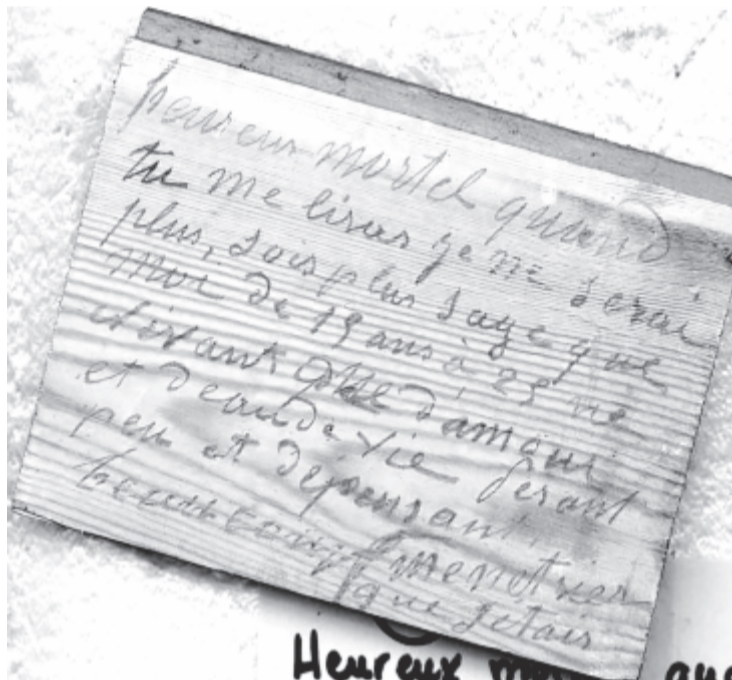 heureux mortel quand
tu me liras je ne serai
plus, sois plus sage que
moi de 19 ans à 25 ne
vivant que d'amour
et d'eau de vie ferant
peu et dépensant
beaucoup menetrier
que jetais
Heureux